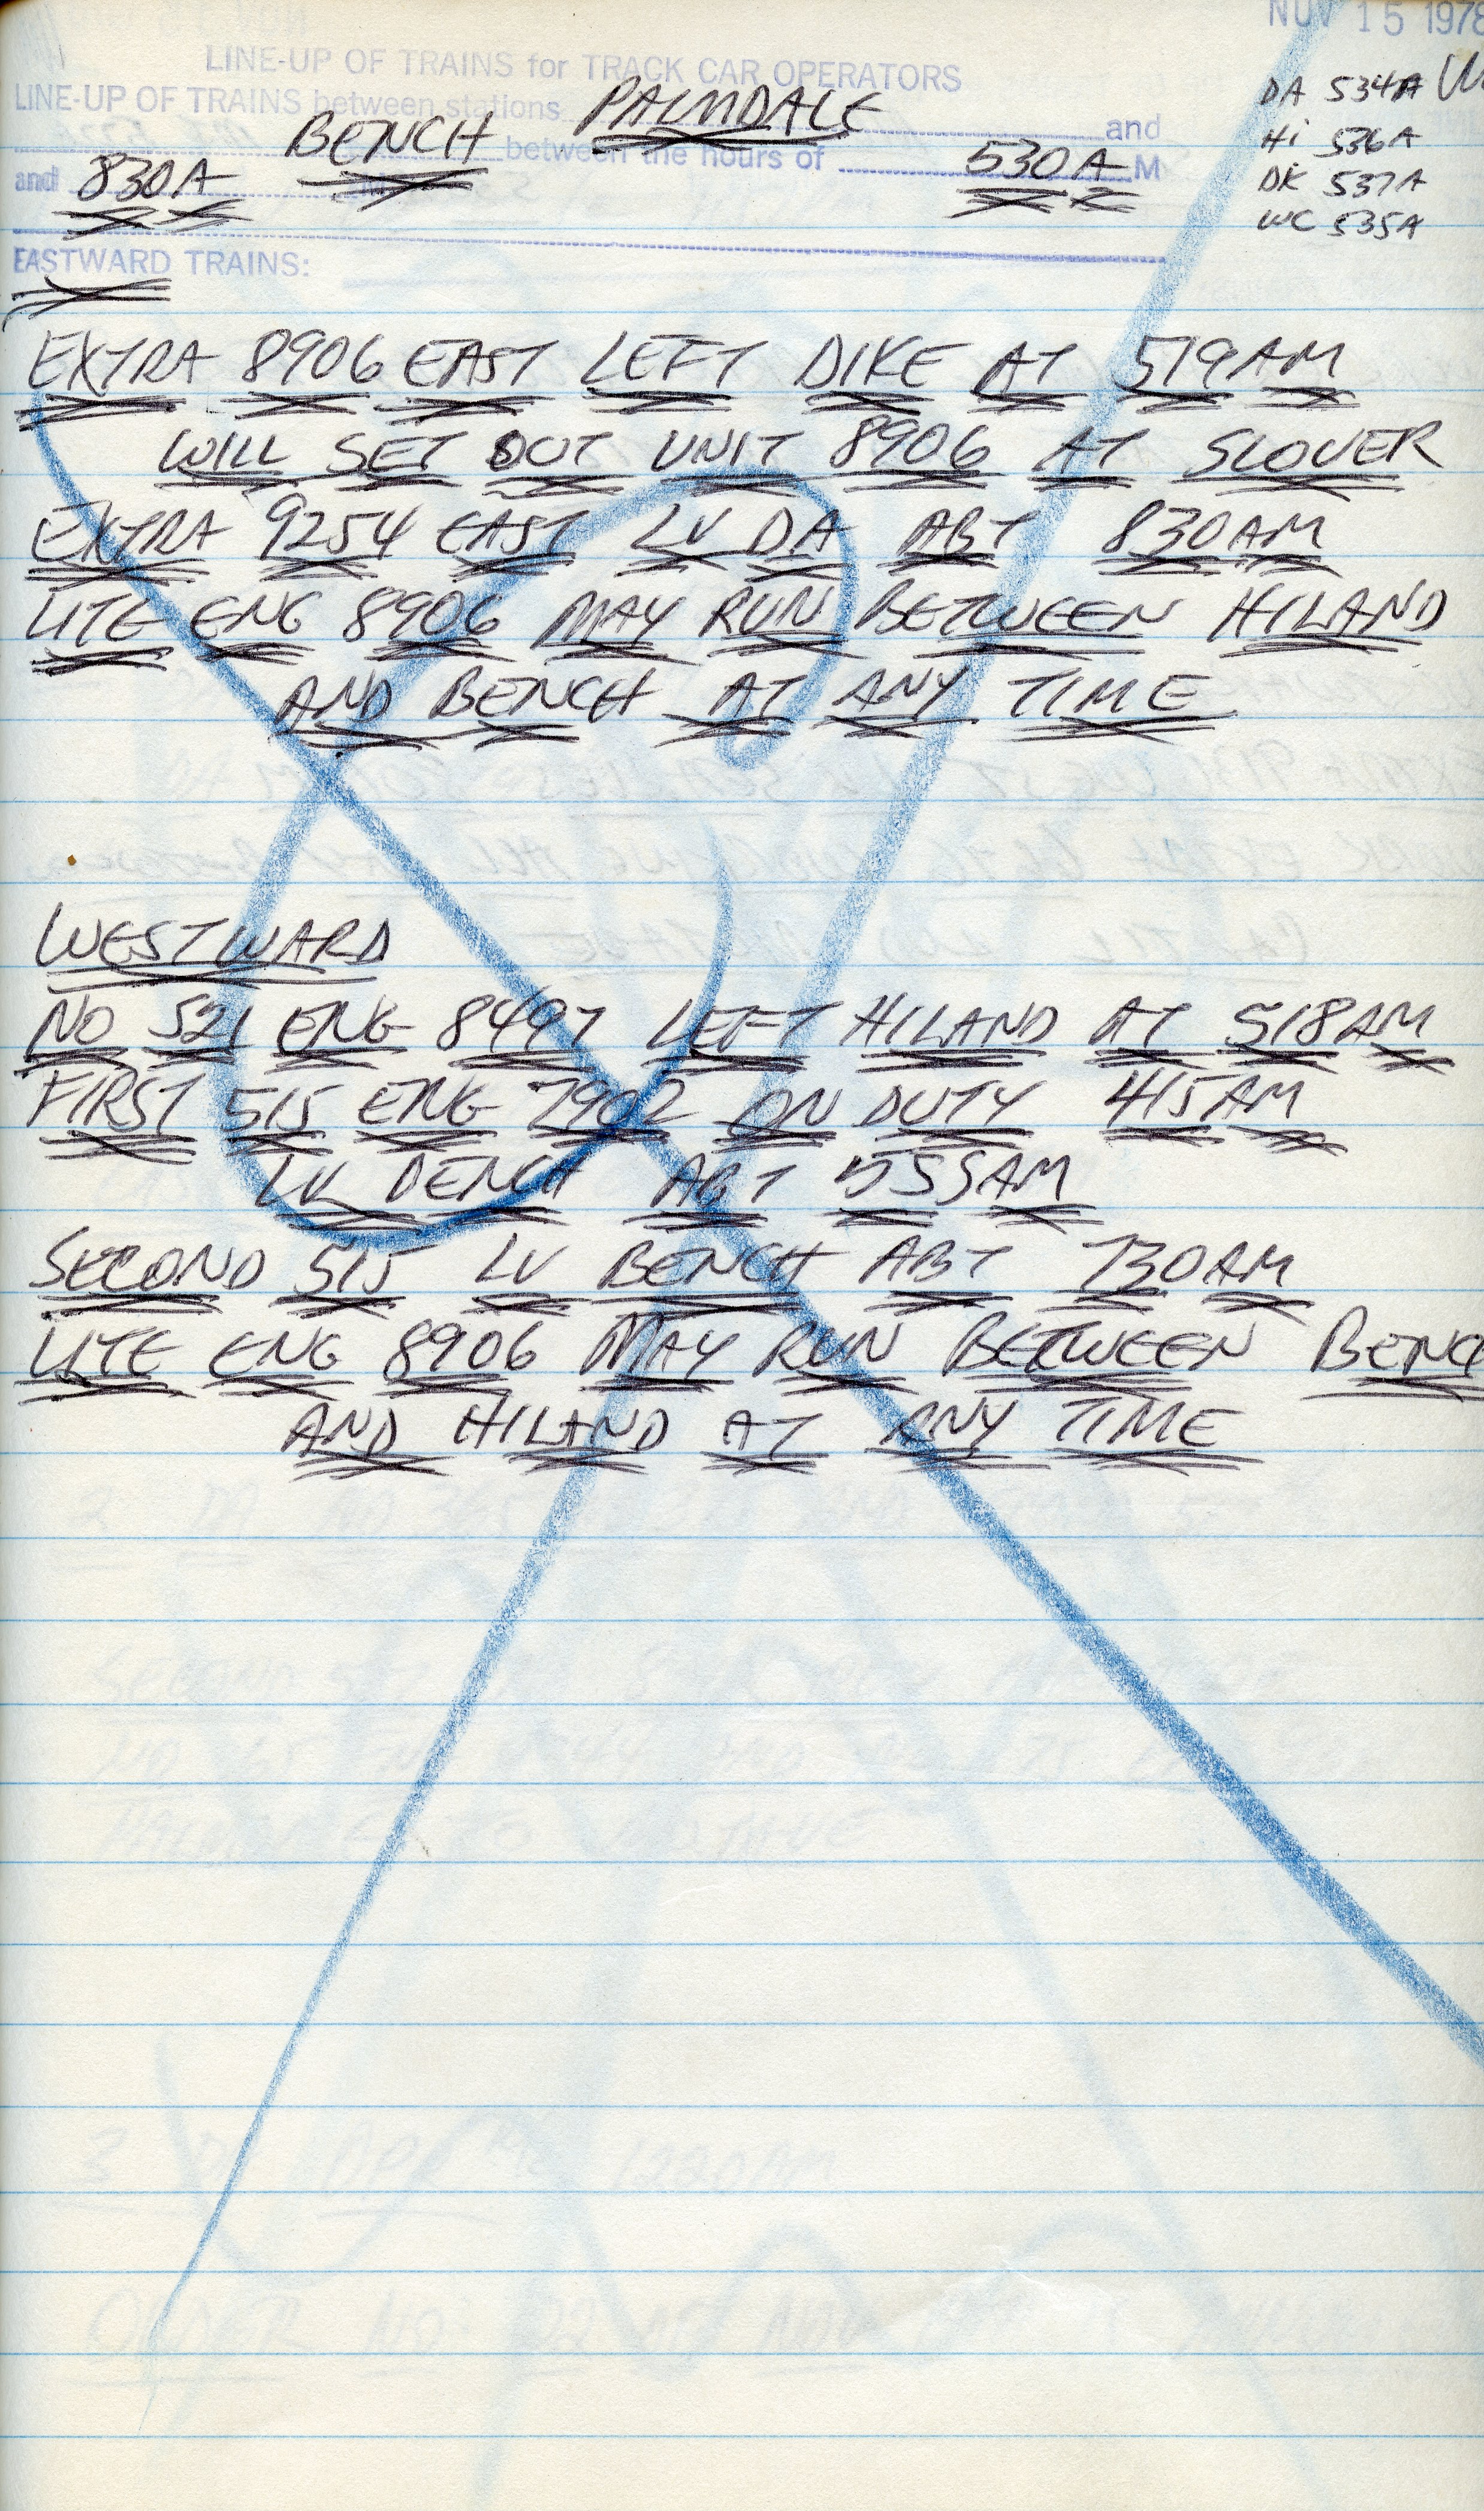 NOV 15 1978
LINE-UP OF TRAINS for TRACK CAR OPERATORS
LINE-UP OF TRAINS between stations PALMDALE and
BENCH between the hours of 530A M
and 830A
DA 534A
Hi 536A
DK 537A
WC 535A
EASTWARD TRAINS:
EXTRA 8906 EAST LEFT DIKE AT 519AM
WILL SET OUT UNIT 8906 AT SLOVER
EXTRA 9254 EAST LV DA ABT 830AM
LITE ENG 8906 MAY RUN BETWEEN HILAND
AND BENCH AT ANY TIME
WESTWARD
NO 521 ENG 8497 LEFT HILAND AT 518AM
FIRST 515 ENG 7902 ON DUTY 415AM
LV BENCH ABT 555AM
SECOND 515 LV BENCH ABT 730AM
LITE ENG 8906 MAY RUN BETWEEN BENC
AND HILAND AT ANY TIME